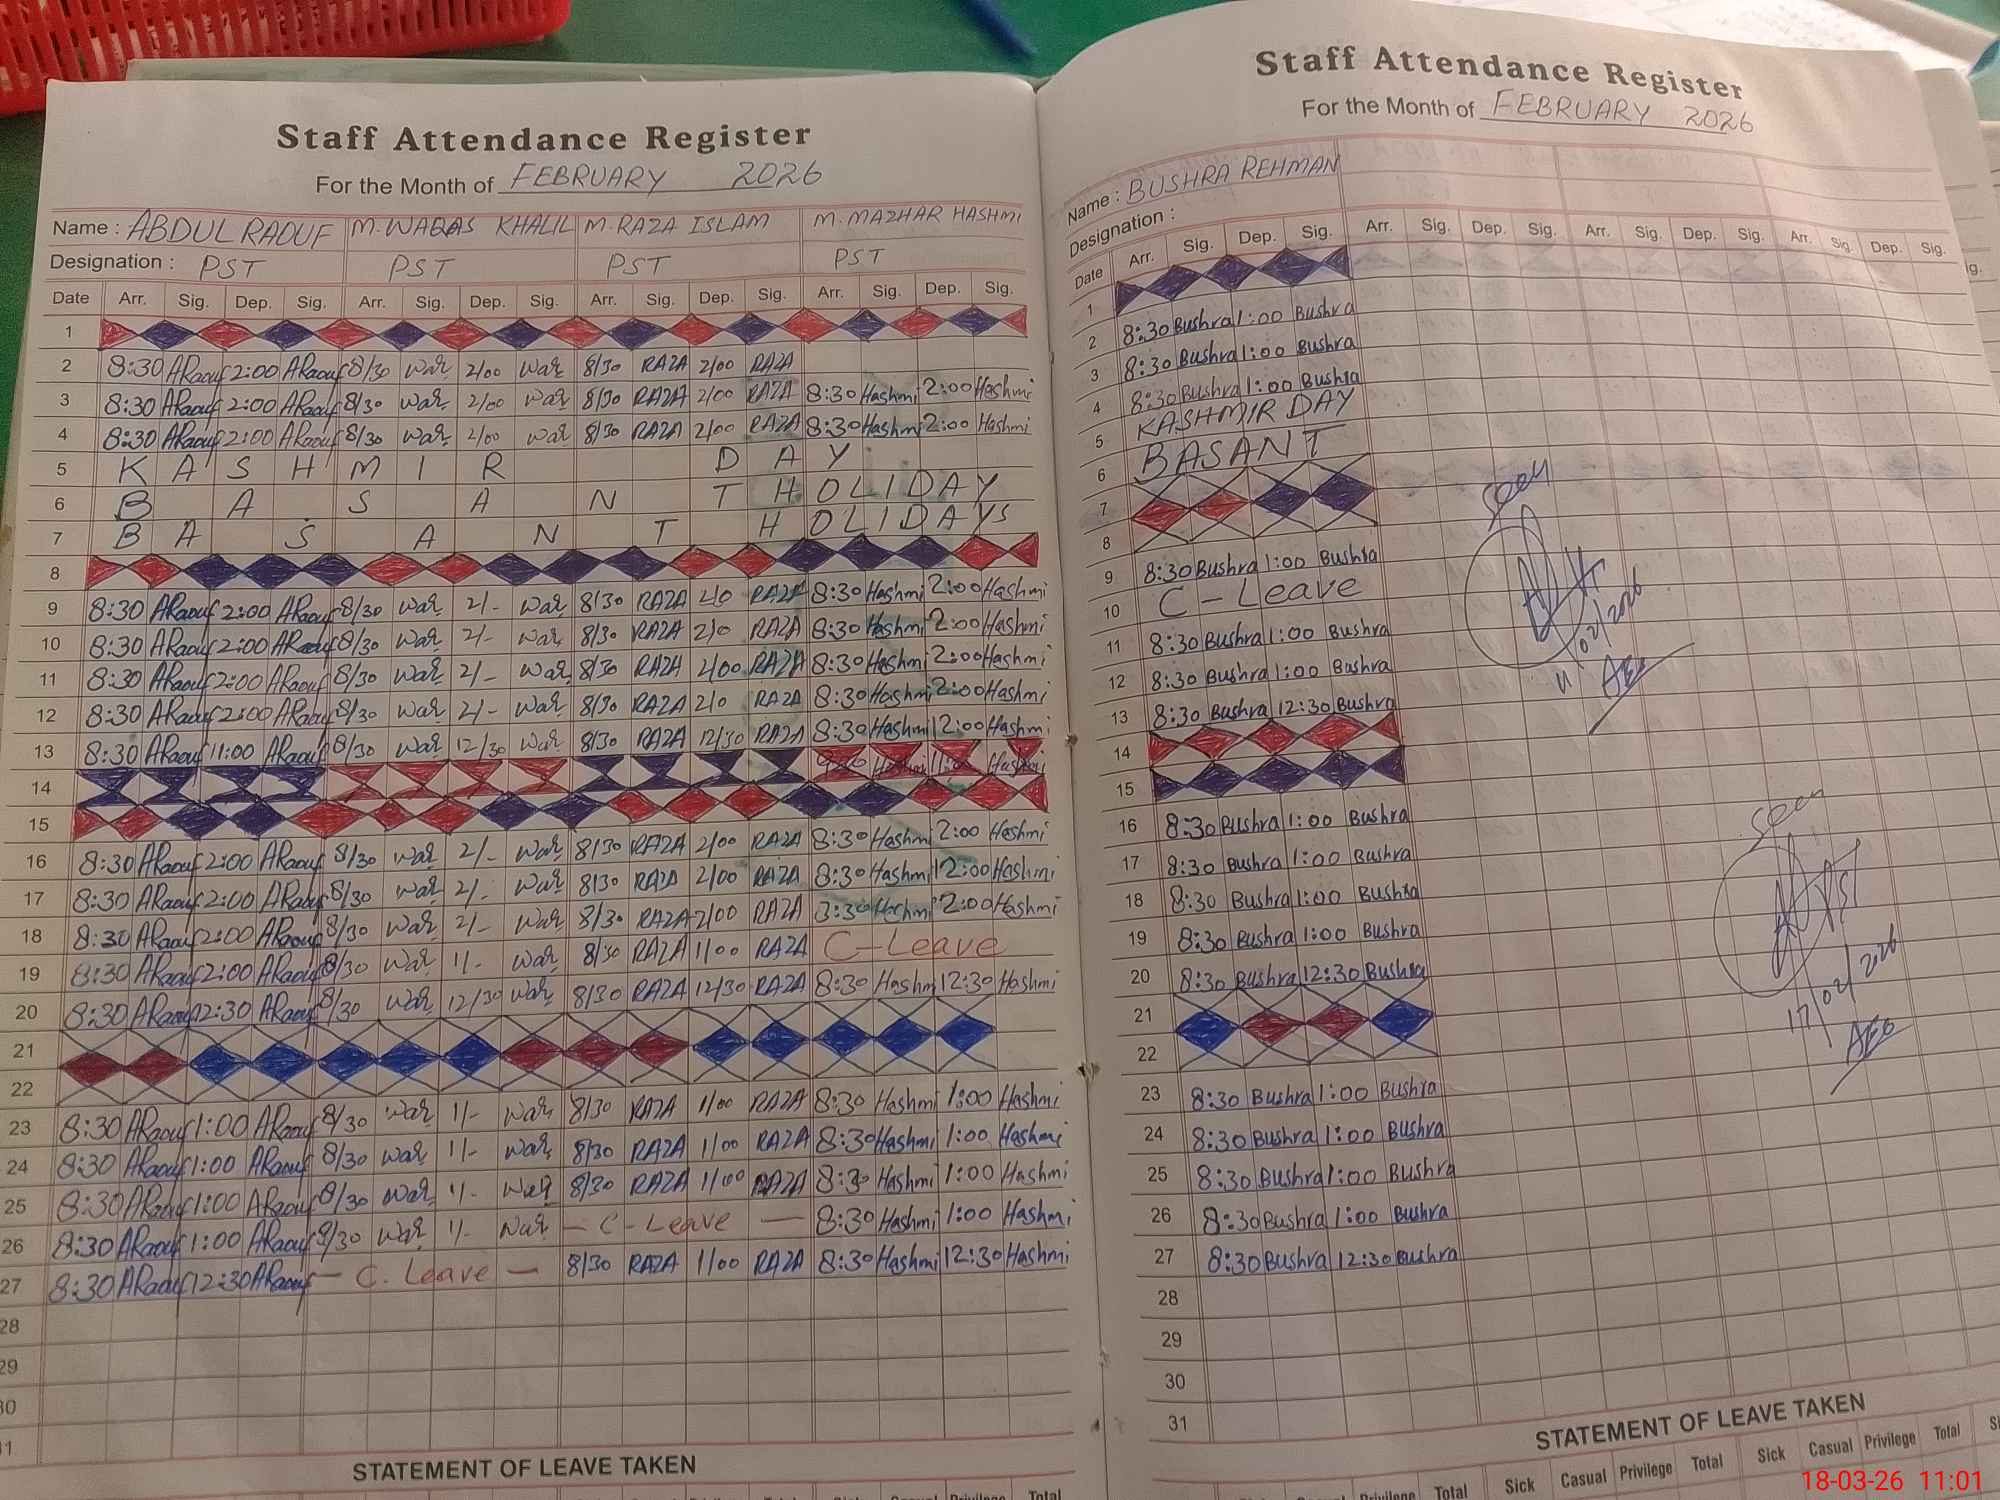 Staff Attendance Register
For the Month of FEBRUARY 2026
Name : ABDUL RAOUF M. WAQAS KHALIL M. RAZA ISLAM M. MAZHAR HASHMI
Designation : PST PST PST PST
Date Arr. Sig. Dep. Sig. Arr. Sig. Dep. Sig. Arr. Sig. Dep. Sig. Arr. Sig. Dep. Sig.
1
2 8:30 ARaouf 2:00 ARaouf 8/30 War 2/00 War 8/30 RAZA 2/00 RAZA
3 8:30 ARaouf 2:00 ARaouf 8/30 War 2/00 War 8/30 RAZA 2/00 RAZA 8:30 Hashmi 2:00 Hashmi
4 8:30 ARaouf 2:00 ARaouf 8/30 War 2/00 War 8/30 RAZA 2/00 RAZA 8:30 Hashmi 2:00 Hashmi
5 KASHMIR DAY
6 BASANT HOLIDAY
7 BASANT HOLIDAYS
8
9 8:30 ARaouf 2:00 ARaouf 8/30 War 2/- War 8/30 RAZA 2/0 RAZA 8:30 Hashmi 2:00 Hashmi
10 8:30 ARaouf 2:00 ARaouf 8/30 War 2/- War 8/30 RAZA 2/0 RAZA 8:30 Hashmi 2:00 Hashmi
11 8:30 ARaouf 2:00 ARaouf 8/30 War 2/- War 8/30 RAZA 2/00 RAZA 8:30 Hashmi 2:00 Hashmi
12 8:30 ARaouf 2:00 ARaouf 8/30 War 2/- War 8/30 RAZA 2/0 RAZA 8:30 Hashmi 2:00 Hashmi
13 8:30 ARaouf 11:00 ARaouf 8/30 War 12/30 War 8/30 RAZA 12/30 RAZA 8:30 Hashmi 12:00 Hashmi
14 Hashmi Hashmi
15
16 8:30 ARaouf 2:00 ARaouf 8/30 War 2/- War 8/30 RAZA 2/00 RAZA 8:30 Hashmi 2:00 Hashmi
17 8:30 ARaouf 2:00 ARaouf 8/30 War 2/- War 8/30 RAZA 2/00 RAZA 8:30 Hashmi 12:00 Hashmi
18 8:30 ARaouf 2:00 ARaouf 8/30 War 2/- War 8/30 RAZA 2/00 RAZA 3:30 Hashmi 2:00 Hashmi
19 8:30 ARaouf 2:00 ARaouf 8/30 War 1/- War 8/30 RAZA 1/00 RAZA C-Leave
20 8:30 ARaouf 12:30 ARaouf 8/30 War 12/30 War 8/30 RAZA 12/30 RAZA 8:30 Hashmi 12:30 Hashmi
21
22
23 8:30 ARaouf 1:00 ARaouf 8/30 War 1/- War 8/30 RAZA 1/00 RAZA 8:30 Hashmi 1:00 Hashmi
24 8:30 ARaouf 1:00 ARaouf 8/30 War 1/- War 8/30 RAZA 1/00 RAZA 8:30 Hashmi 1:00 Hashmi
25 8:30 ARaouf 1:00 ARaouf 8/30 War 1/- War 8/30 RAZA 1/00 RAZA 8:30 Hashmi 1:00 Hashmi
26 8:30 ARaouf 1:00 ARaouf 8/30 War 1/- War - C-Leave - 8:30 Hashmi 1:00 Hashmi
27 8:30 ARaouf 12:30 ARaouf - C. Leave - 8/30 RAZA 1/00 RAZA 8:30 Hashmi 12:30 Hashmi
28
29
30
31
STATEMENT OF LEAVE TAKEN
Total
Staff Attendance Register
For the Month of FEBRUARY 2026
Name : BUSHRA REHMAN
Designation :
Date Arr. Sig. Dep. Sig. Arr. Sig. Dep. Sig. Arr. Sig. Dep. Sig. Arr. Sig. Dep. Sig.
1
2 8:30 Bushra 1:00 Bushra
3 8:30 Bushra 1:00 Bushra
4 8:30 Bushra 1:00 Bushra
5 KASHMIR DAY
6 BASANT
7
8
9 8:30 Bushra 1:00 Bushra
10 C-Leave
11 8:30 Bushra 1:00 Bushra
12 8:30 Bushra 1:00 Bushra
13 8:30 Bushra 12:30 Bushra
14
15
16 8:30 Bushra 1:00 Bushra
17 8:30 Bushra 1:00 Bushra
18 8:30 Bushra 1:00 Bushra
19 8:30 Bushra 1:00 Bushra
20 8:30 Bushra 12:30 Bushra
21
22
23 8:30 Bushra 1:00 Bushra
24 8:30 Bushra 1:00 Bushra
25 8:30 Bushra 1:00 Bushra
26 8:30 Bushra 1:00 Bushra
27 8:30 Bushra 12:30 Bushra
28
29
30
31
Seen
11/02/2026
AEO
Seen
17/02/2026
AEO
STATEMENT OF LEAVE TAKEN
Privilege Total Sick Casual Privilege Total Sick Casual Privilege Total
18-03-26 11:01